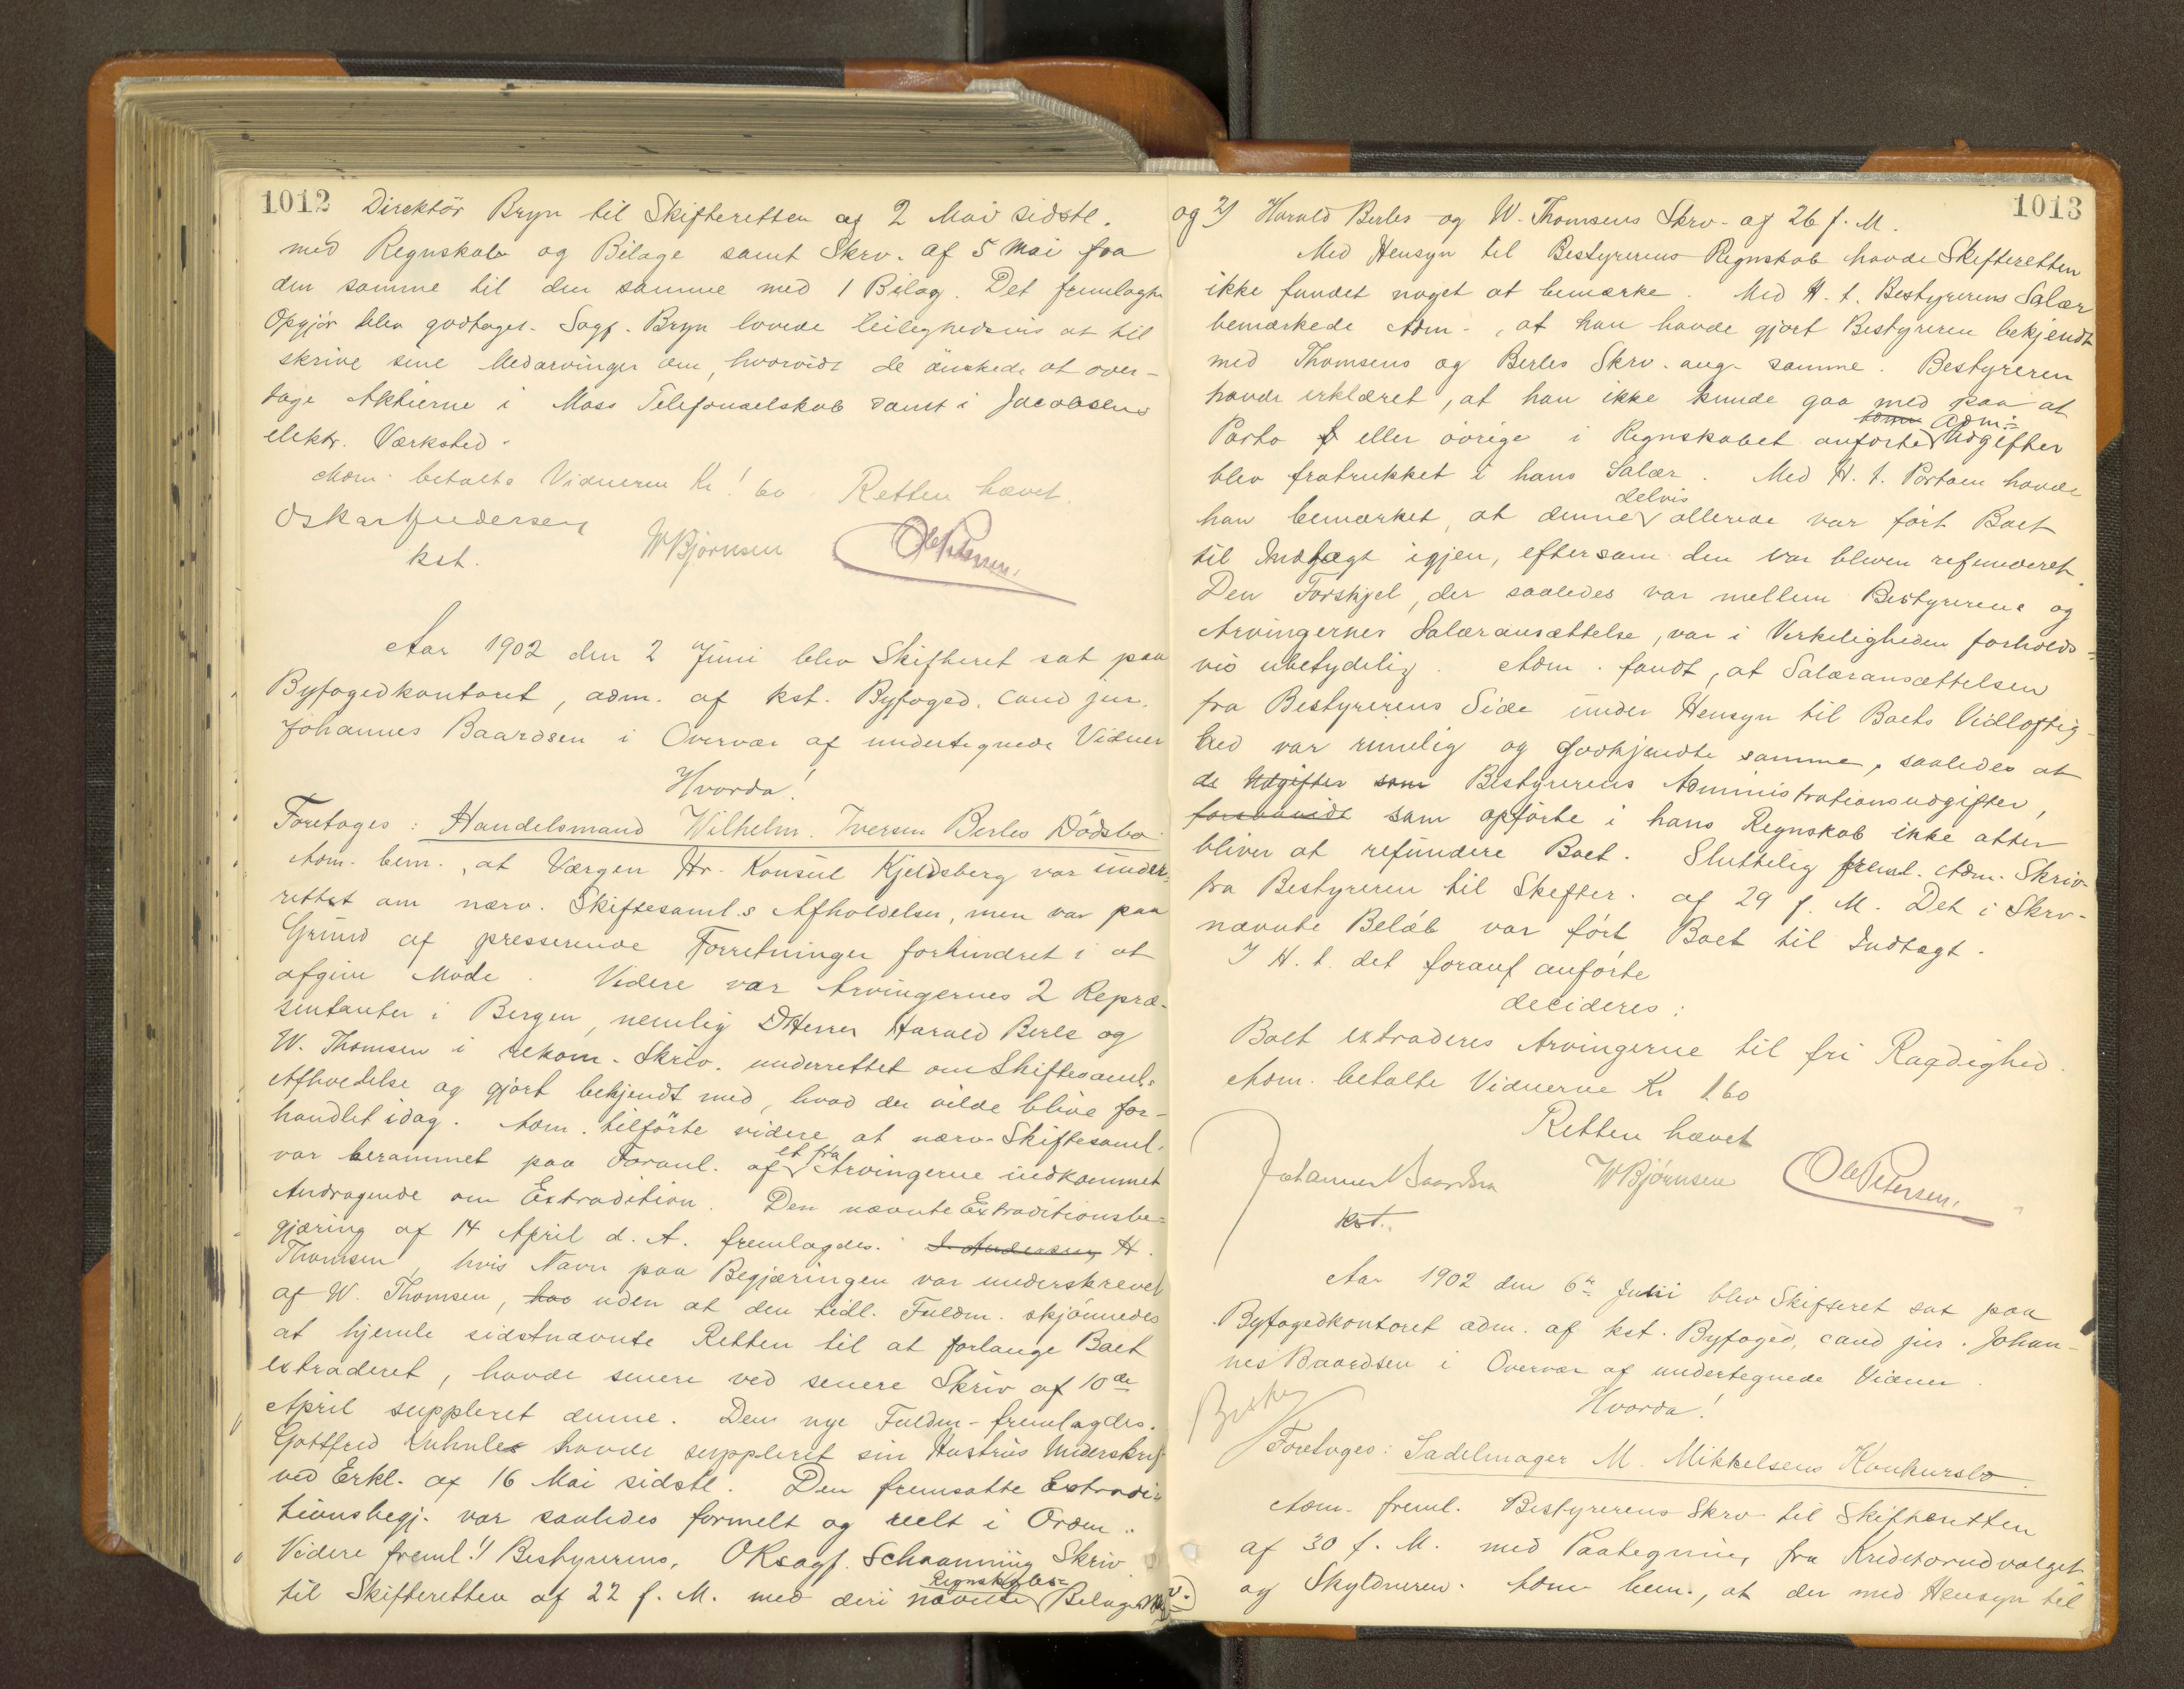 1012
Direktör Bryn til Skifteretten af 2 Mai sidstl.
med Regnskab og Bilage samt Skrv. af 5 Mai fra
den samme til den samme med 1 Bilag. Det fremlagte
Opgjör blev godtaget. Sagf. Bryn lovede leilighedsvis at til
skrive sine Medarvinger om, hvorvidt de önskede at over-
tage Aktierne i Moss Telefonselskab samt i Jacobsens
elektr. Værksted.
Adm. betalte Vidnerne Kr. 1.60. Retten hævet.
Oskar Andersen
kst.
W Bjørnsen
Ole Petersen.
Aar 1902 den 2 Juni blev Skifteret sat paa
Byfogedkontoret, adm. af kst. Byfoged, cand jur.
Johannes Baardsen i Overvær af undertegnede Vidner
Hvorda!
Foretoges: Handelsmand Wilhelm Iversen Berles Dödsbo
Adm. bem., at Værgen Hr. Konsul Kjeldsberg var under-
rettet om nærv. Skiftesaml.s Afholdelse, men var paa
Grund af presserende Forretninger forhindret i at
afgive Möde. Videre var Arvingernes 2 Repræ-
sentanter i Bergen, nemlig DHerrer Harald Berle og
W. Thomsen i rekom. Skriv. underrettet om Skiftesaml.s
Afholdelse og gjort bekjendt med, hvad der vilde blive for-
handlet idag. Adm. tilförte videre at nærv. Skiftesaml.
var berammet paa Foranl. af et fra Arvingerne indkommet
Andragende om Extradition. Den nævnte Extraditionsbe-
gjæring af 14 April d. A. fremlagdes. I. Andersen, H.
Thomsen, hvis Navn paa Begjæringen var underskrevet
af W. Thomsen, hav uden at den tidl. Fuldm. skjönnedes
at hjemle sidstnævnte Retten til at forlange Boet
extraderet, havde senere ved senere Skriv af 10de
April suppleret denne. Den nye Fuldm. fremlagdes.
Gottfred havde suppleret sin Hustrus Underskrift
ved Erkl. af 16 Mai sidstl. Den fremsatte Extradi-
tionsbegj. var saaledes formelt og reelt i Orden.
Videre freml. 1) Bestyrerens, ORsagf. Schaanning Skriv.
til Skifteretten af 22 f. M. med deri nævnte Regnskabs- Bilage
1013
og 2) Harald Berles og W. Thomsens Skrv. af 26 f. M.
Med Hensyn til Bestyrerens Regnskab havde Skifteretten
ikke fundet noget at bemærke. Med H. t. Bestyrerens Salær
bemærkede Adm., at han havde gjort Bestyreren bekjendt
med Thomsens og Berles Skrv. ang. samme. Bestyreren
havde erklæret, at han ikke kunde gaa med paa at
Porto eller övrige i Regnskabet anförte adm. Udgifter
blev fratrukket i hans Salær. Med H. t. Portoen havde
han bemærket, at denne delvis allerede var fört Boet
til Indtægt igjen, eftersom den var bleven refunderet.
Den Forskjel, der saaledes var mellem Bestyrerens og
Arvingernes Salæransættelse, var i Virkeligheden forholds-
vis ubetydelig. Adm. fandt, at Salæransættelsen
fra Bestyrerens Side under Hensyn til Boets Vidlöftig-
hed var rimelig og godkjendte samme, saaledes at
de Udgifter som Bestyrerens Administrationsudgifter,
forsaavidt som opförte i hans Regnskab ikke atter
bliver at refundere Boet. Sluttelig freml. Adm. Skriv.
fra Bestyreren til Skifter. af 29 f. M. Det i Skrv.
nævnte Belöb var fört Boet til Indtægt.
I H. t. det foranf anförte
decideres:
Boet extraderes Arvingerne til fri Raadighed.
Adm. betalte Vidnerne Kr 1.60
Retten hævet
Johannes Baardsen
kst.
W Bjørnsen
Ole Petersen.
Aar 1902 den 6te Juni blev Skifteret sat paa
Byfogedkontoret adm. af kst. Byfoged, cand jur. Johan-
nes Baardsen i Overvær af undertegnede Vidner.
Hvorda!
Foretoges: Sadelmager M. Mikkelsens Konkursbo.
Adm. freml. Bestyrerens Skrv. til Skifteretten
af 30 f. M. med Paategning fra Kreditorudvalget
og Skyldneren. Adm. bem., at der med Hensyn til